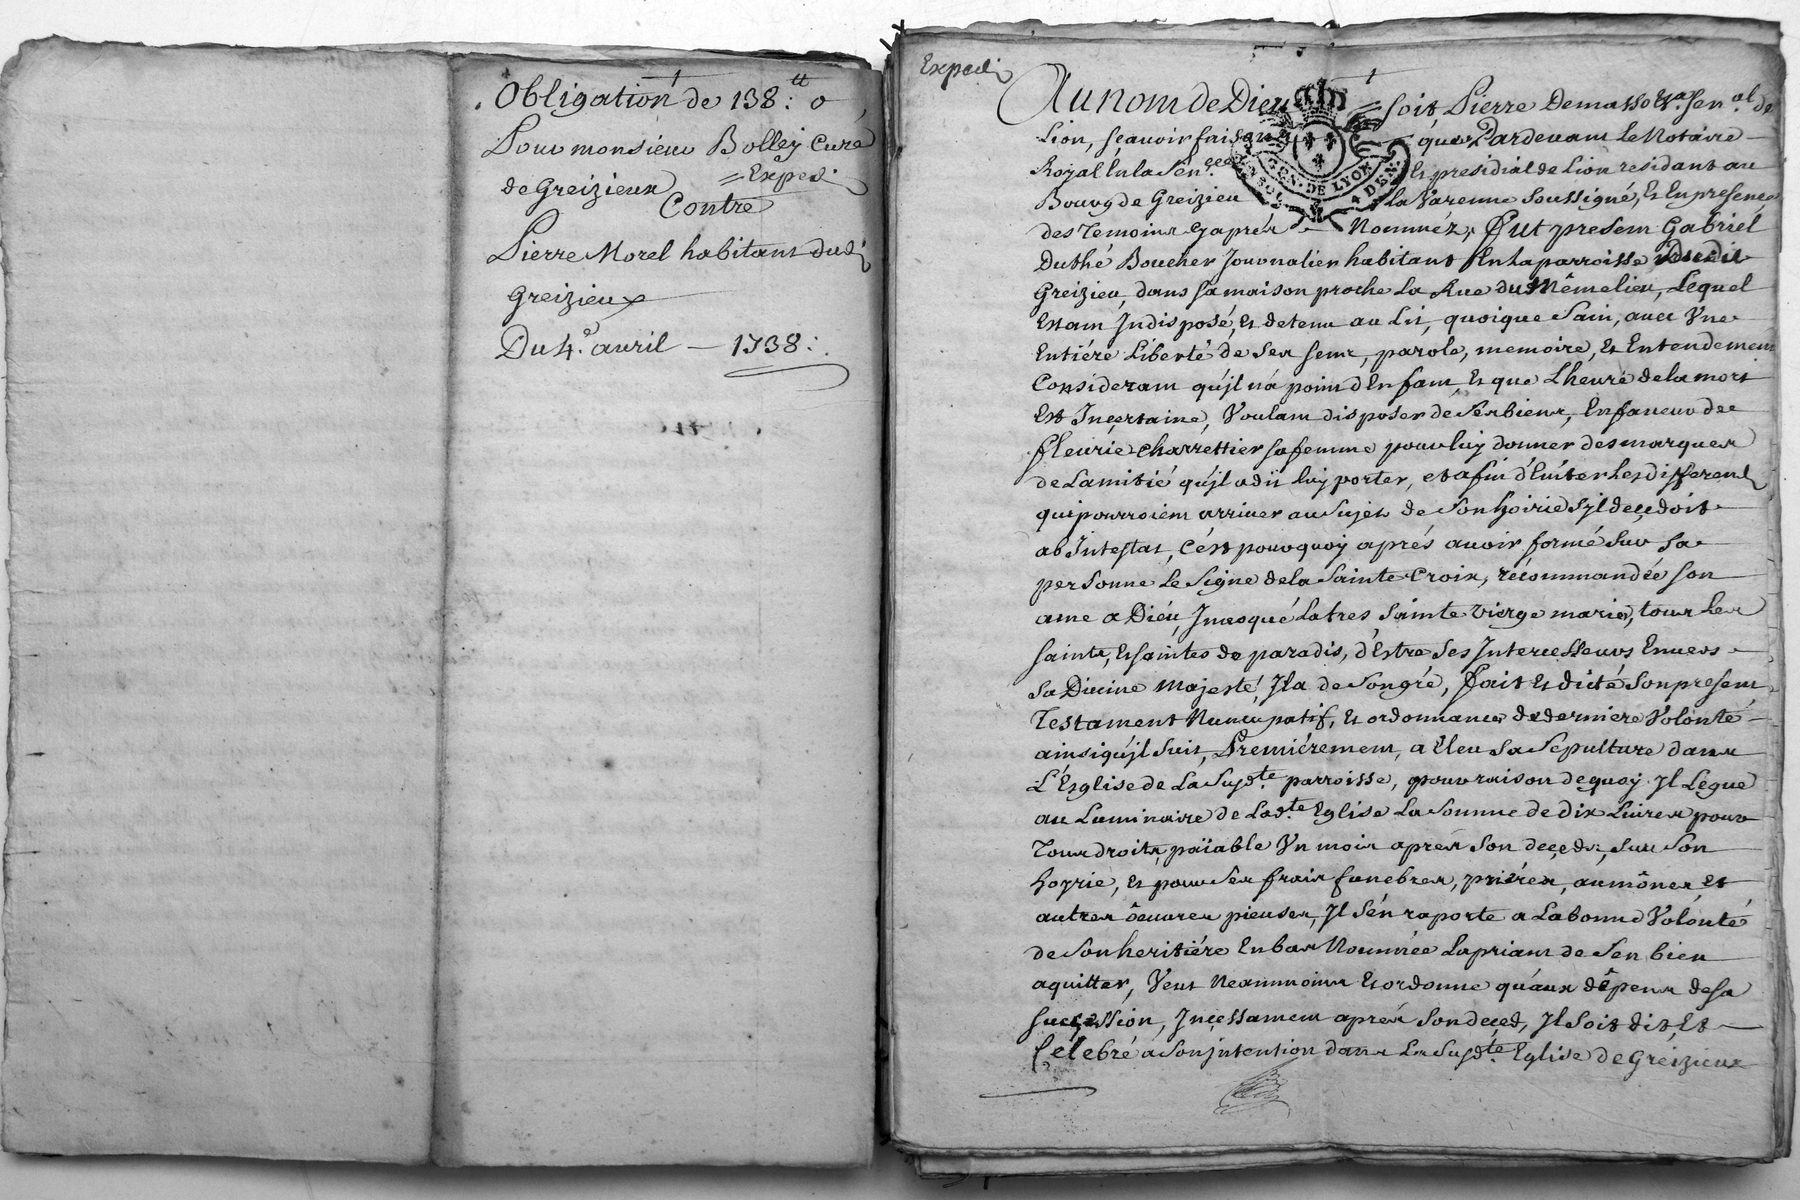 Obligation de 138:ᵗᵗ 0
Pour monsieur Bolley Curé
de Greizieux = Exped.
Contre
Pierre Morel habitant dud.
Greizieux
Du 4.ᵉ avril – 1738:
Exped.
Au nom de Dieu = soit Pierre Demasso Sen.ᵃˡ de
Lion, sçavoir faisons que Pardevant Le Notaire
Royal En la Sen.ᶜᵉᵉ Et presidial de Lion residant au
Bourg de Greizieu la Varenne Soussigné, Et En presence
des Temoins cy aprés – Nommez, Fut present Gabriel
Duthé Boucher Journalier habitant En la parroisse dudit
Greizieu, dans sa maison proche la Rue du Même lieu, Lequel
Estant Indisposé, Et detenu au Lit, quoique Sain, avec Une
Entiére Liberté de Ses sens, parole, memoire, Et Entendement
Considerant qu'jl n'a point d'Enfant Et que L'heure de la mort
Est Inçertaine, Voulant disposer de Ses biens, En faveur de
fleurie Charrettier sa femme pour luy donner des marques
de Lamitié qu'jl a dû luy porter, et afin d'Eviter Les differends
qui pourroient arriver au Sujet de Son hoirie S'jl deçedoit
ab Intestat, C'est pourquoy aprés avoir formé Sur Sa
personne Le Signe de la Sainte Croix, récommandée son
ame a Diéu, Invoqué La tres Sainte Vierge marie, tous les
saints, Et saintes de paradis, d'Estre Ses Intercesseurs Envers
Sa Divine Majesté, Jl a de Son gré, fait Et dicté Son present
Testament Nuncupatif, Et ordonnance de derniere Volonté
ainsi qu'jl Suit, Premiérement, a Eleu Sa Sepulture dans
L'Eglise de La Susd.ᵗᵉ parroisse, pour raison de quoy Jl Legue
au Luminaire de Lad.ᵗᵉ Eglise La Somme de dix Livres pour
Tous droits, païable Vn mois apres Son deçeds, sur Son
hoyrie, Et pour Ses frais funebres, priéres, aumônes, Et
autres ôeuvres pieuses, Jl S'én raporte a La bonne Volonté
de Son heritiére En bas Nommée La priant de S'en bien
aquitter, Veut Neanmoins Et ordonne qu'aux dêpens de sa
suççession, Inçessament aprés Son deçed, Jl Soit dit Et
Célebré a Son jntention dans La Susd.ᵗᵉ Eglise de Greizieux
GEN. DE LYON